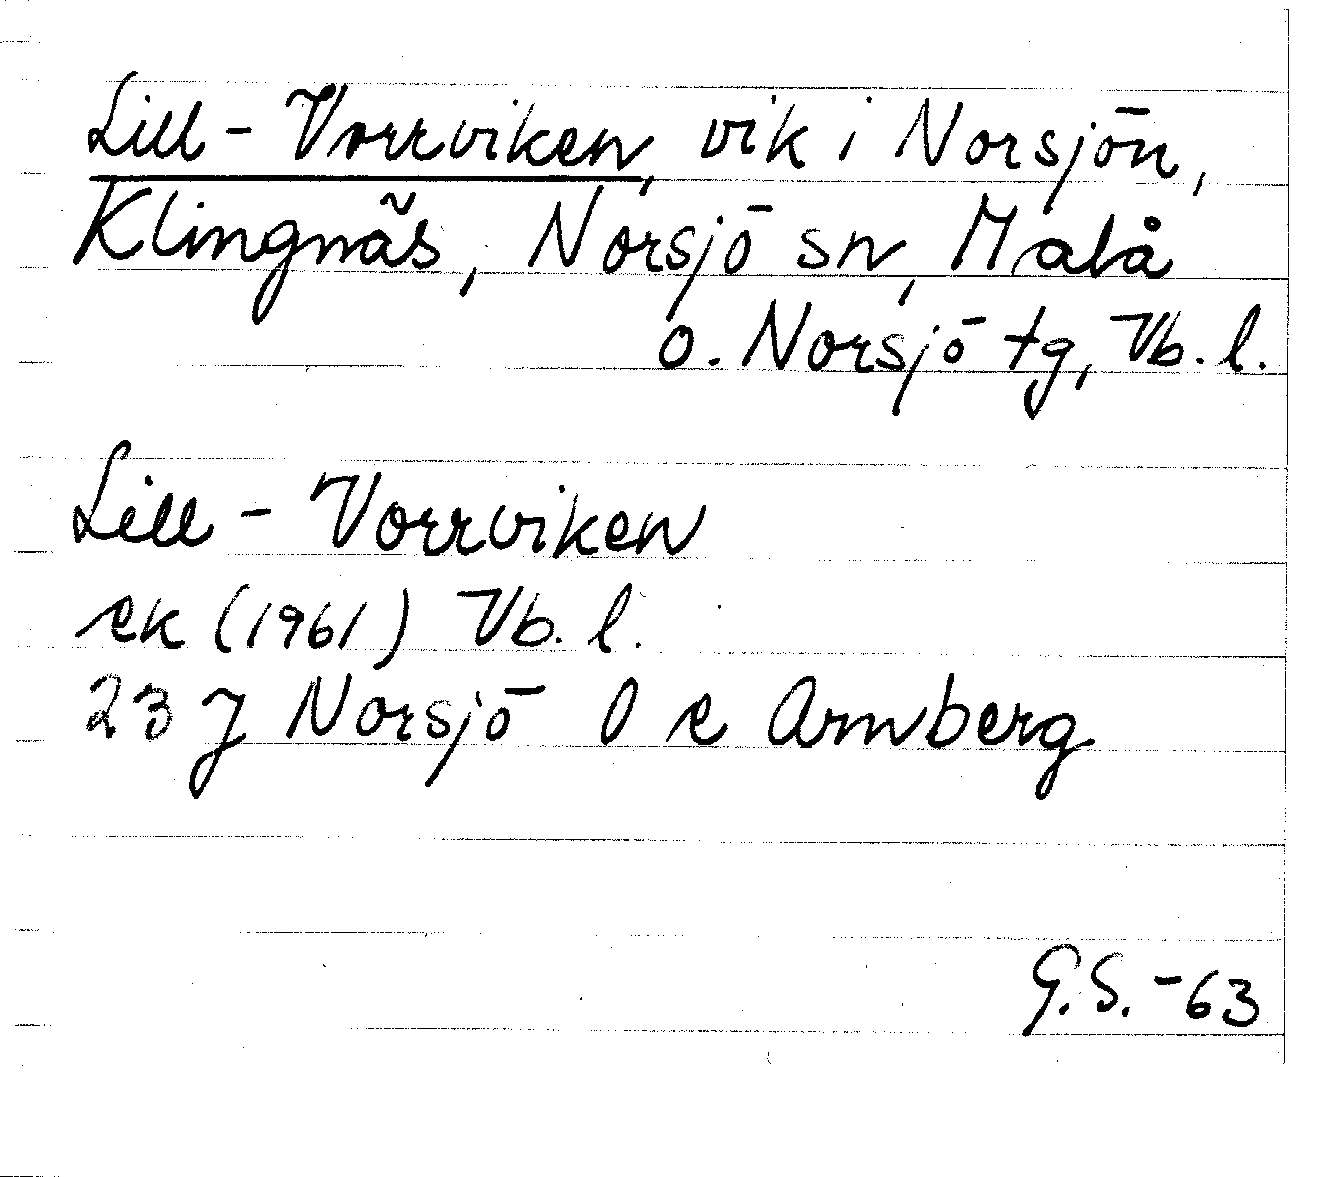 Lill-Vorrviken, vik i Norsjön,
Klingnäs, Norsjö sn, Malå
o. Norsjö tg, Vb. l.
Lill-Vorrviken
ek (1961) Vb. l.
23 J Norsjö O e Arnberg
G.S. -63